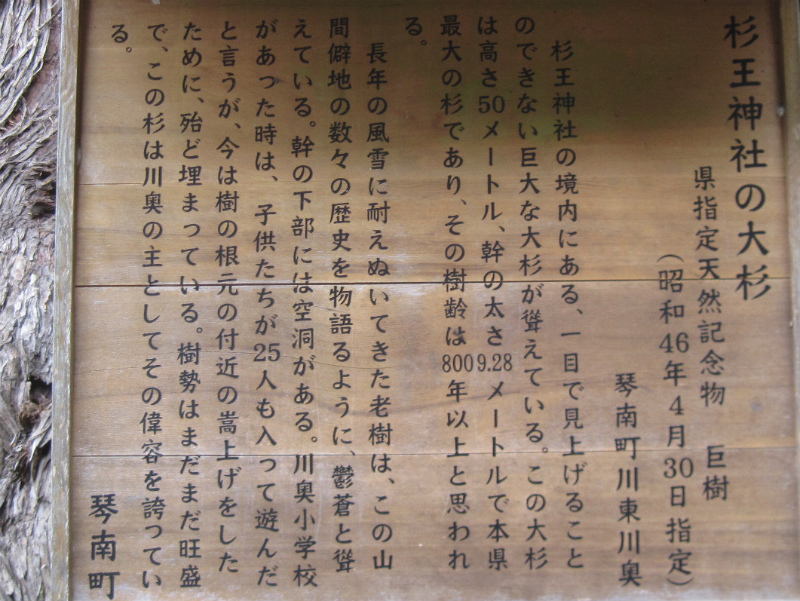 杉王神社の大杉
県指定天然記念物　巨樹
(昭和46年4月30日指定)
琴南町川東川奥
杉王神社の境内にある、一目で見上げること
のできない巨大な大杉が聳えている。この大杉
は高さ50メートル、幹の太さ9.28メートルで本県
最大の杉であり、その樹齢は800年以上と思われ
る。
長年の風雪に耐えぬいてきた老樹は、この山
間僻地の数々の歴史を物語るように、鬱蒼と聳
えている。幹の下部には空洞がある。川奥小学校
があった時は、子供たちが25人も入って遊んだ
と言うが、今は樹の根元の付近の嵩上げをした
ために、殆ど埋まっている。樹勢はまだまだ旺盛
で、この杉は川奥の主としてその偉容を誇ってい
る。
琴南町